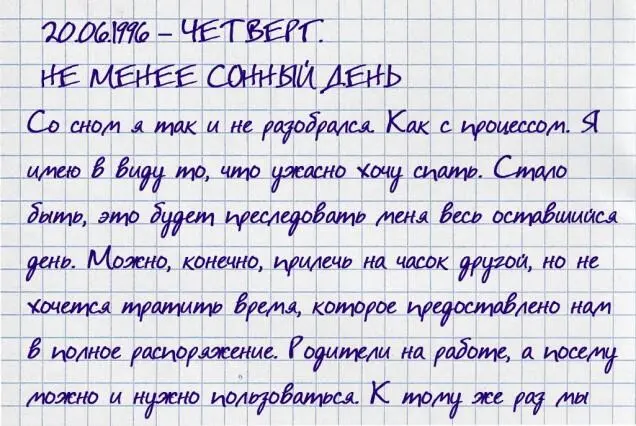 20.06.1996 – ЧЕТВЕРГ.
НЕ МЕНЕЕ СОННЫЙ ДЕНЬ
Со сном я так и не разобрался. Как с процессом. Я
имею в виду то, что ужасно хочу спать. Стало
быть, это будет преследовать меня весь оставшийся
день. Можно, конечно, прилечь на часок другой, но не
хочется тратить время, которое предоставлено нам
в полное распоряжение. Родители на работе, а посему
можно и нужно пользоваться. К тому же раз мы